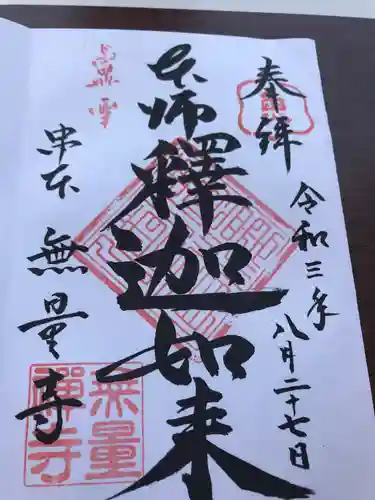 奉拝
令和三年八月二十七日
本師釋迦如来
串本
無量寺
無量
禅寺